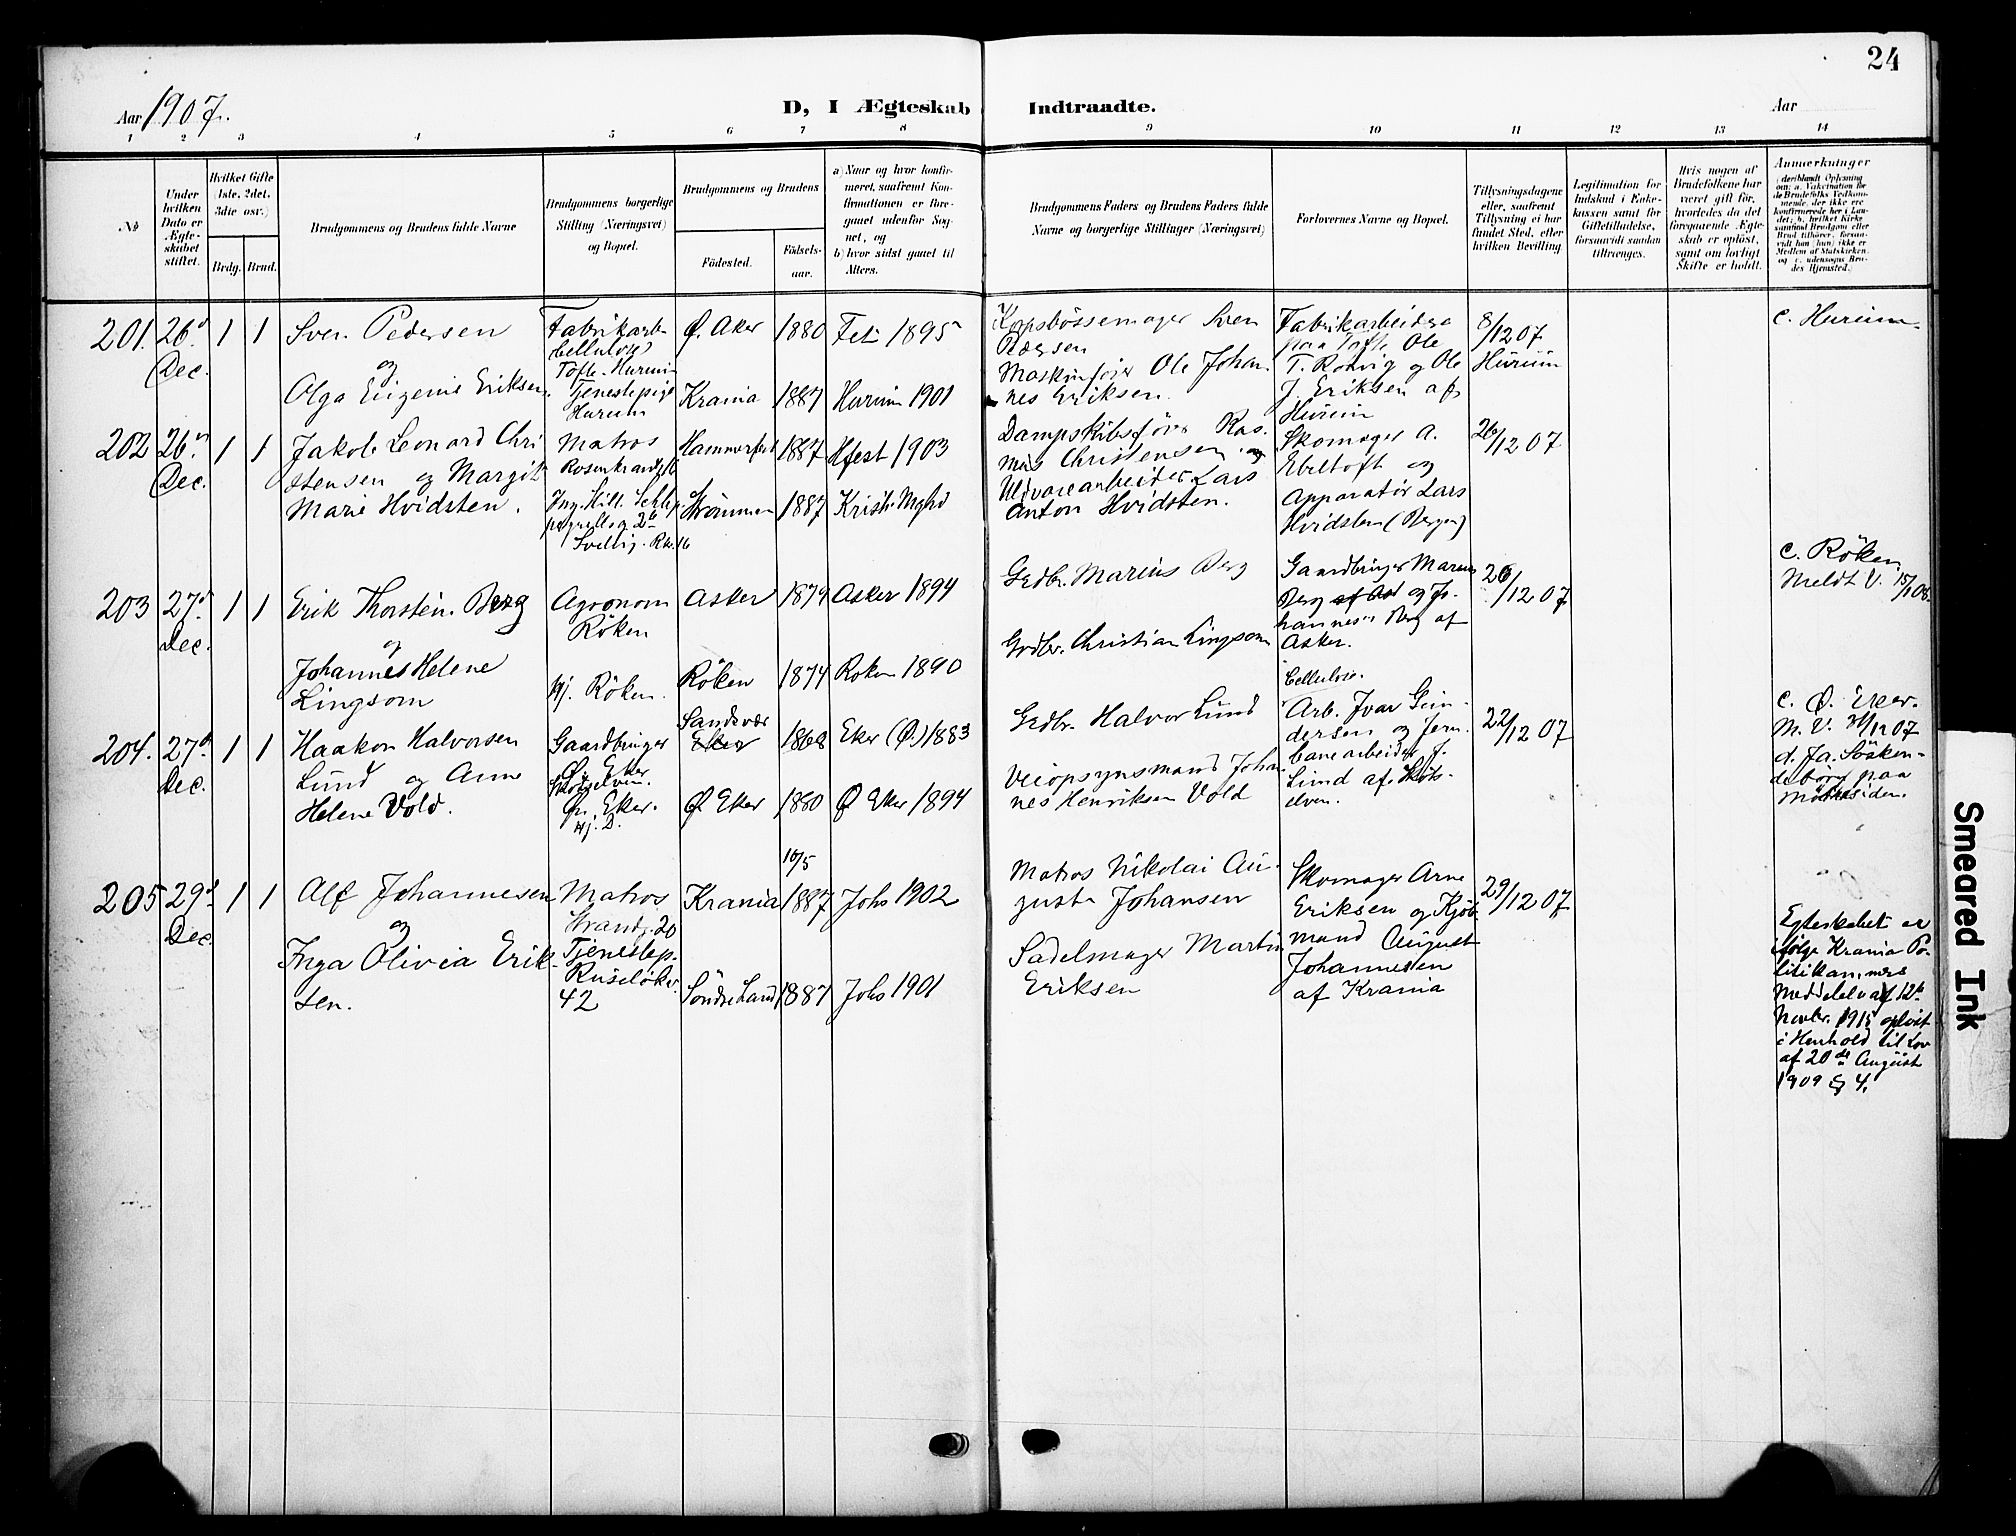 24
Aar 1907.
D, I Ægteskab Indtraadte.
Aar
1 2 3 4 5 6 7 8 9 10 11 12 13 14
№
Under hvilken Dato er Ægteskabet stiftet.
Hvilket Gifte (1ste, 2det, 3die osv.)
Brdg. Brud.
Brudgommens og Brudens fulde Navne
Brudgommens borgerlige Stilling (Næringsvei) og Bopæl.
Brudgommens og Brudens
Fødested.
Fødsels-aar.
a) Naar og hvor konfirmeret, saafremt Konfirmationen er foregaaet udenfor Sognet, og
b) hvor sidst gaaet til Alters.
Brudgommens Faders og Brudens Faders fulde Navne og borgerlige Stillinger (Næringsvei)
Forlovernes Navne og Bopæl.
Tillysningsdagene eller, saafremt Tillysning ei har fundet Sted, efter hvilken Bevilling.
Legitimation for Indskud i Enkekassen samt for Giftetilladelse, forsaavidt saadan tiltrænges.
Hvis nogen af Brudefolkene har været gift før, hvorledes da det foregaaende Ægteskab er opløst, samt om lovligt Skifte er holdt.
Anmerkninger
201. 26d Dec. 1 1
Sven Pedersen
og
Olga Eugenie Eriksen.
Fabrikarb.
Cellulose
Tofte Hurum
Tjenestepige
Hurum
Ø. Aker 1880 Fet 1895
Krania 1887 Hurum 1901
Sven
Pedersen
Maskinfører Ole Johan-
nes Eriksen.
Fabrikarbeidere
paa Tofte Ole
T. Rodvig og Ole
J. Eriksen af
Hurum
8/12 07
Hurum
c. Hurum.
202 26d Dec. 1 1
Jakob Leonard Chri
stensen og Margit
Marie Hvidsten.
Matros
Hammerfest 1887 Hfest 1903
Strømmen 1887
Dampskibsfører Ras-
mus Christensen og
Uldvarearbeider Lars
Anton Hvidsten.
Skomager A.
Ebeltoft og
Apparatør Lars
Hvidsten (Bergen)
26/12 07
203 27d Dec. 1 1
Erik Thorsten Berg
og
Johannes Helene
Lingsom
Agronom
Røken
Hj. Røken.
Asker 1879 Asker 1894
Røken 1874 Røken 1890
Grdbr. Marius Berg
Grdbr. Christian Lingsom
Gaardbruger Marius
Berg og Jo-
hannes Berg af
Asker.
26/12 07
c. Røken
Meldt V. 15/1 08.
204. 27d Dec. 1 1
Haakon Halvorsen
Lund og Anne
Helene Vold.
Gaardbruger
Ø. Eker
Skotselven.
Ø. Eker.
Hj. D.
Sandsvær
Eker 1868 Eker (Ø.) 1883
Ø Eker 1880 Ø Eker 1894
Grdbr. Halvor Lund
Veiopsynsmand Johan
nes Henriksen Vold
Cellulose.
Arb. Ivar Gun-
dersen og Jern-
banearbeider J.
Lund af Skots-
elven.
22/12 07
c. Ø. Eker.
M. V. 31/12 07
d. fa. Søsken-
debørn paa
Mødresiden.
205 29d Dec. 1 1
Alf Johannesen
og
Inga Olivia Erik-
sen.
Matros
Strandg. 20
Tjenestep.
Ruseløkv.
42
16/5
Krania 1887 Johs 1902
Søndre Land 1887 Johs 1901
Matros Nikolai Au-
gust Johansen
Sadelmager Martin
Eriksen
Skomager Arne
Eriksen og Kjøb
mand August
Johannesen
af Krania
29/12 07
Egteskabet er
ifølge Krania Po-
litikammers
Meddelelse af 12te
Novbr. 1915 opløst
i Henhold til Lov
af 20de August
1909 § 4.
Smeared Ink